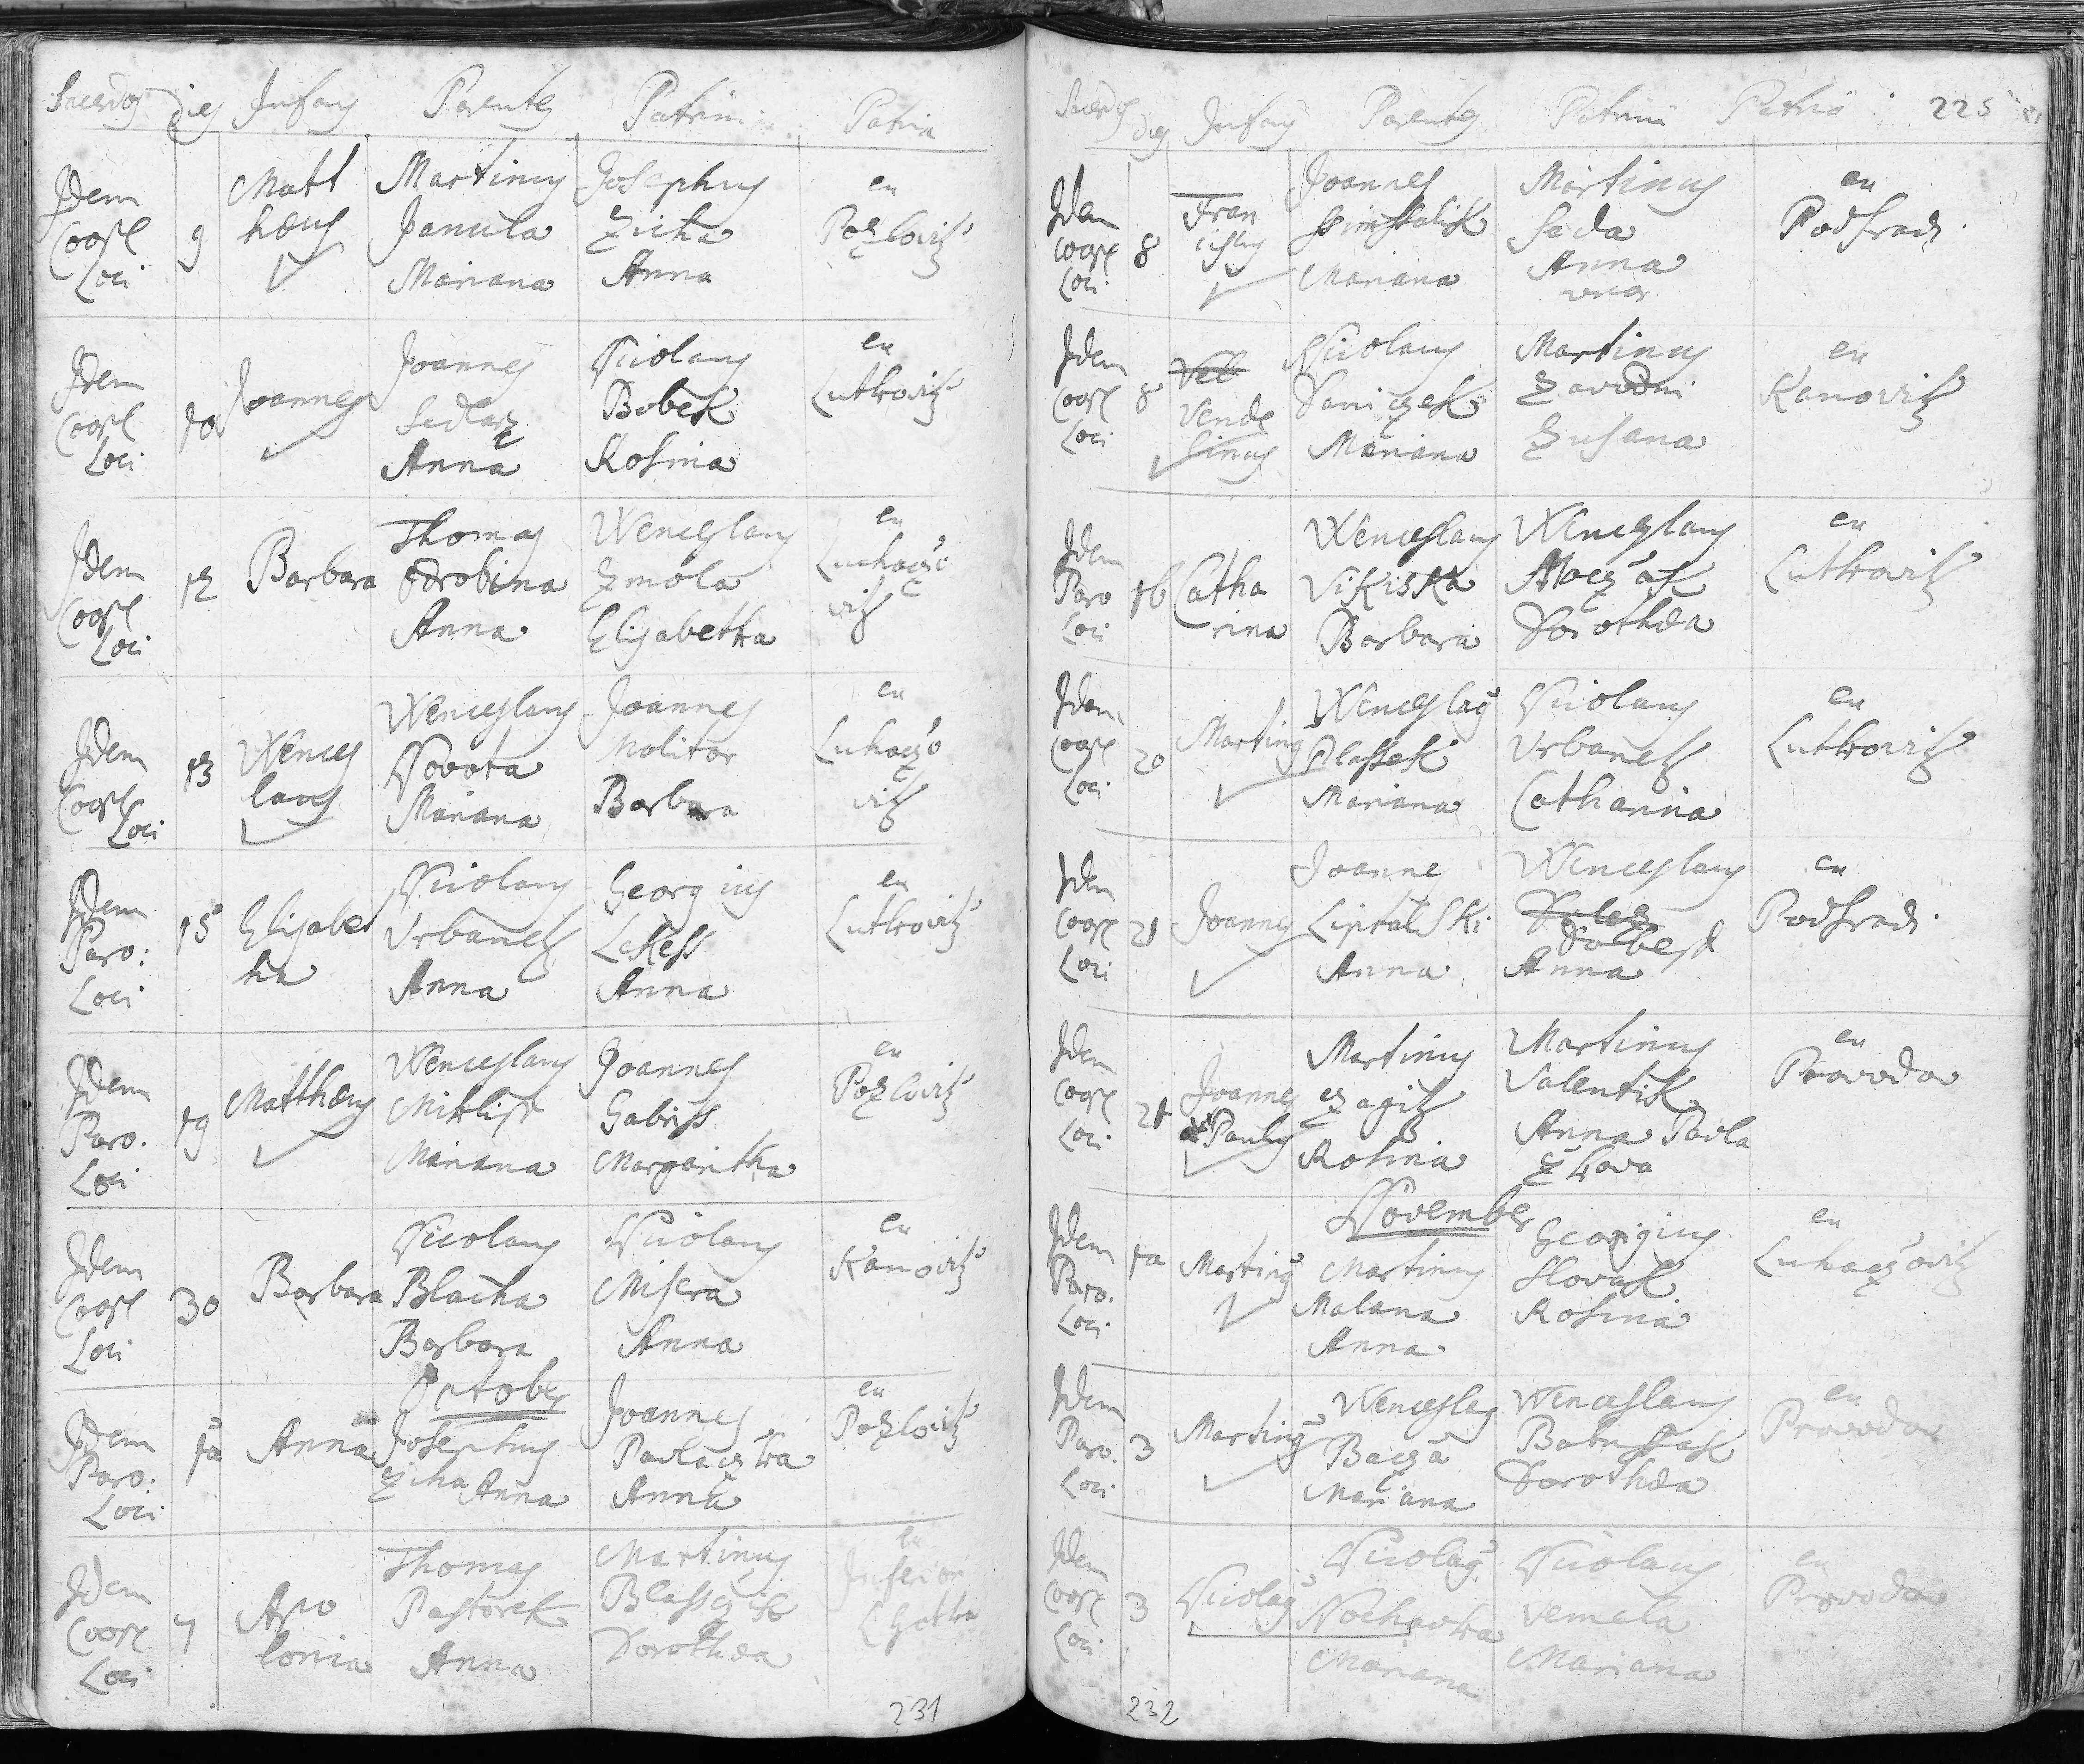 Sacerdos dies Infans Parentes Patrini Patria
Idem
Coope
Loci
9
Matt
hæus
Martinus
Janula
Mariana
Josephus
Zicha
Anna
ex
Pozlovitz
Idem
Coope
Loci
10
Joannes
Joannes
Sedlarz
Anna
Nicolaus
Bobek
Rosina
ex
Lutkovitz
Idem
Coope
Loci
12
Barbara
Thomas
Odrobina
Anna
Wenceslaus
Zmola
Elisabetha
ex
Luhaczo
vitz
Idem
Coope
Loci
13
Wences
laus
Wenceslaus
Novota
Mariana
Joannes
Molitor
Barbara
ex
Luhaczo
vitz
Idem
Paro:
Loci
15
Elisabet
ha
Nicolaus
Urbanek
Anna
Georgius
Lekess
Anna
ex
Lutkovitz
Idem
Paro.
Loci
19
Matthæus
Wenceslaus
Miklisk
Mariana
Joannes
Gabriss
Margaritha
ex
Pozlovitz
Idem
Coope
Loci
30
Barbara
Nicolaus
Blacha
Barbara
Nicolaus
Misera
Anna
ex
Kanovitz
October
Idem
Paro:
Loci
1a
Anna
Josephus
Ziha Anna
Joannes
Pavlaczka
Anna
ex
Pozlovitz
Idem
Coope
Loci
7
Apo
lonia
Thomas
Pastorek
Anna
Martinus
Blasczik
Dorothea
ex
Inferior
Lhotka
231
Sacerdos dies Infans Parentes Patrini Patria 225
Idem
Coope
Loci
8
Fran
ciscus
Joannes
Simsalik
Mariana
Martinus
Sada
Anna
uxor
ex
Podhradi
Idem
Coope
Loci
8
Vel
Vende
linus
Nicolaus
Daniczek
Mariana
Martinus
Zavodni
Zusana
ex
Kanovitz
Idem
Paro
Loci
16
Catha
rina
Wenceslaus
Vikiska
Barbara
Wenceslaus
Moczak
Dorothea
ex
Lutkovitz
Idem
Coope
Loci
20
Martinus
Wenceslaus
Plassek
Mariana
Nicolaus
Urbanek
Catharina
ex
Lutkovitz
Idem
Coope
Loci
21
Joannes
Joanne
Liptalski
Anna
Wenceslaus
Anna
ex
Podhradi
Idem
Coope
Loci
21
Joannes
Paulus
Martinus
czagitz
Rosina
Martinus
Valentik
Anna Pavla
ex
Provodov
November
Idem
Paro.
Loci
1a
Martinus
Martinus
Malana
Anna
Georgius
Slovak
Rosina
ex
Luhaczovitz
Idem
Paro.
Loci
3
Martinus
Wenceslaus
Bacza
Mariana
Wenceslaus
Babussak
Dorothea
ex
Provodov
Idem
Coope
Loci
3
Nicolaus
Nicolaus
Nochavka
Mariana
Nicolaus
Vemela
Mariana
ex
Provodov
232